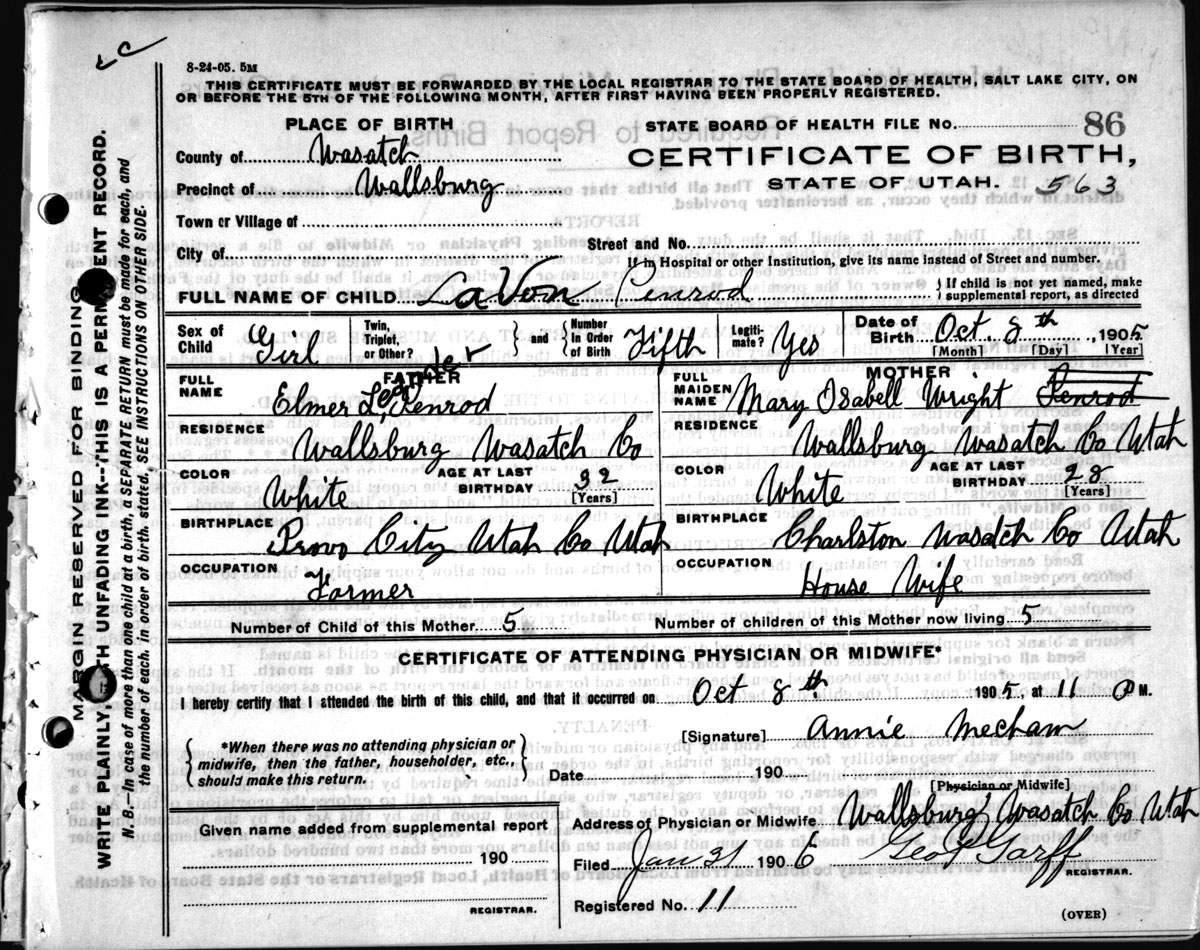 8-24-05. 5M
THIS CERTIFICATE MUST BE FORWARDED BY THE LOCAL REGISTRAR TO THE STATE BOARD OF HEALTH, SALT LAKE CITY, ON
OR BEFORE THE 5TH OF THE FOLLOWING MONTH, AFTER FIRST HAVING BEEN PROPERLY REGISTERED.
PLACE OF BIRTH
STATE BOARD OF HEALTH FILE No. 86
County of Wasatch
CERTIFICATE OF BIRTH,
Precinct of Wallsburg
STATE OF UTAH. 563
Town or Village of
City of
Street and No.
If in Hospital or other Institution, give its name instead of Street and number.
FULL NAME OF CHILD LaVon Penrod { If child is not yet named, make
supplemental report, as directed
Sex of Child Girl Twin, Triplet, or Other? } and { Number in Order of Birth Fifth Legiti-mate? Yes Date of Birth Oct. 8th, 1905
[Month] [Day] [Year]
FATHER
FULL NAME Elmer Leander Penrod
MOTHER
FULL MAIDEN NAME Mary Isabell Wright Penrod
RESIDENCE Wallsburg Wasatch Co
RESIDENCE Wallsburg Wasatch Co Utah
COLOR White AGE AT LAST BIRTHDAY 32 [Years]
COLOR White AGE AT LAST BIRTHDAY 28 [Years]
BIRTHPLACE Provo City Utah Co Utah
BIRTHPLACE Charlston Wasatch Co Utah
OCCUPATION Farmer
OCCUPATION House Wife
Number of Child of this Mother 5 Number of children of this Mother now living 5
CERTIFICATE OF ATTENDING PHYSICIAN OR MIDWIFE*
I hereby certify that I attended the birth of this child, and that it occurred on Oct 8th 1905, at 11 P M.
[Signature] Annie Mecham
{ *When there was no attending physician or
midwife, then the father, householder, etc.,
should make this return. }
Date 190
[Physician or Midwife]
Given name added from supplemental report
190
REGISTRAR.
Address of Physician or Midwife Wallsburg Wasatch Co Utah
Filed Jan 31 1906 Geo P Garff
REGISTRAR.
Registered No. 11
(OVER)
MARGIN RESERVED FOR BINDING
WRITE PLAINLY, WITH UNFADING INK--THIS IS A PERMANENT RECORD.
N. B.—In case of more than one child at a birth, a SEPARATE RETURN must be made for each, and
the number of each, in order of birth, stated, SEE INSTRUCTIONS ON OTHER SIDE.